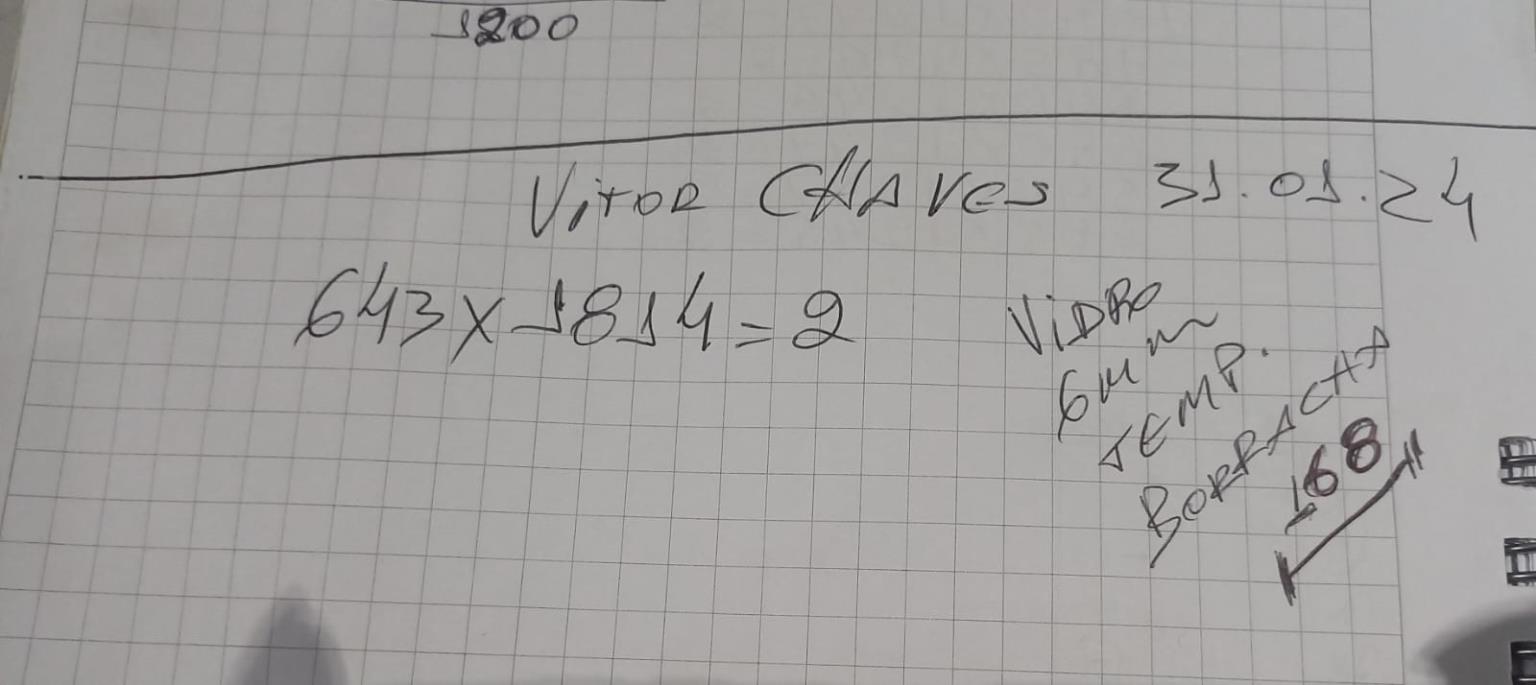 1200
Vitor CHAVES 31.01.24
643 x 1814 = 2
ViDRO
6MM
TEMP.
BORRACHA
168